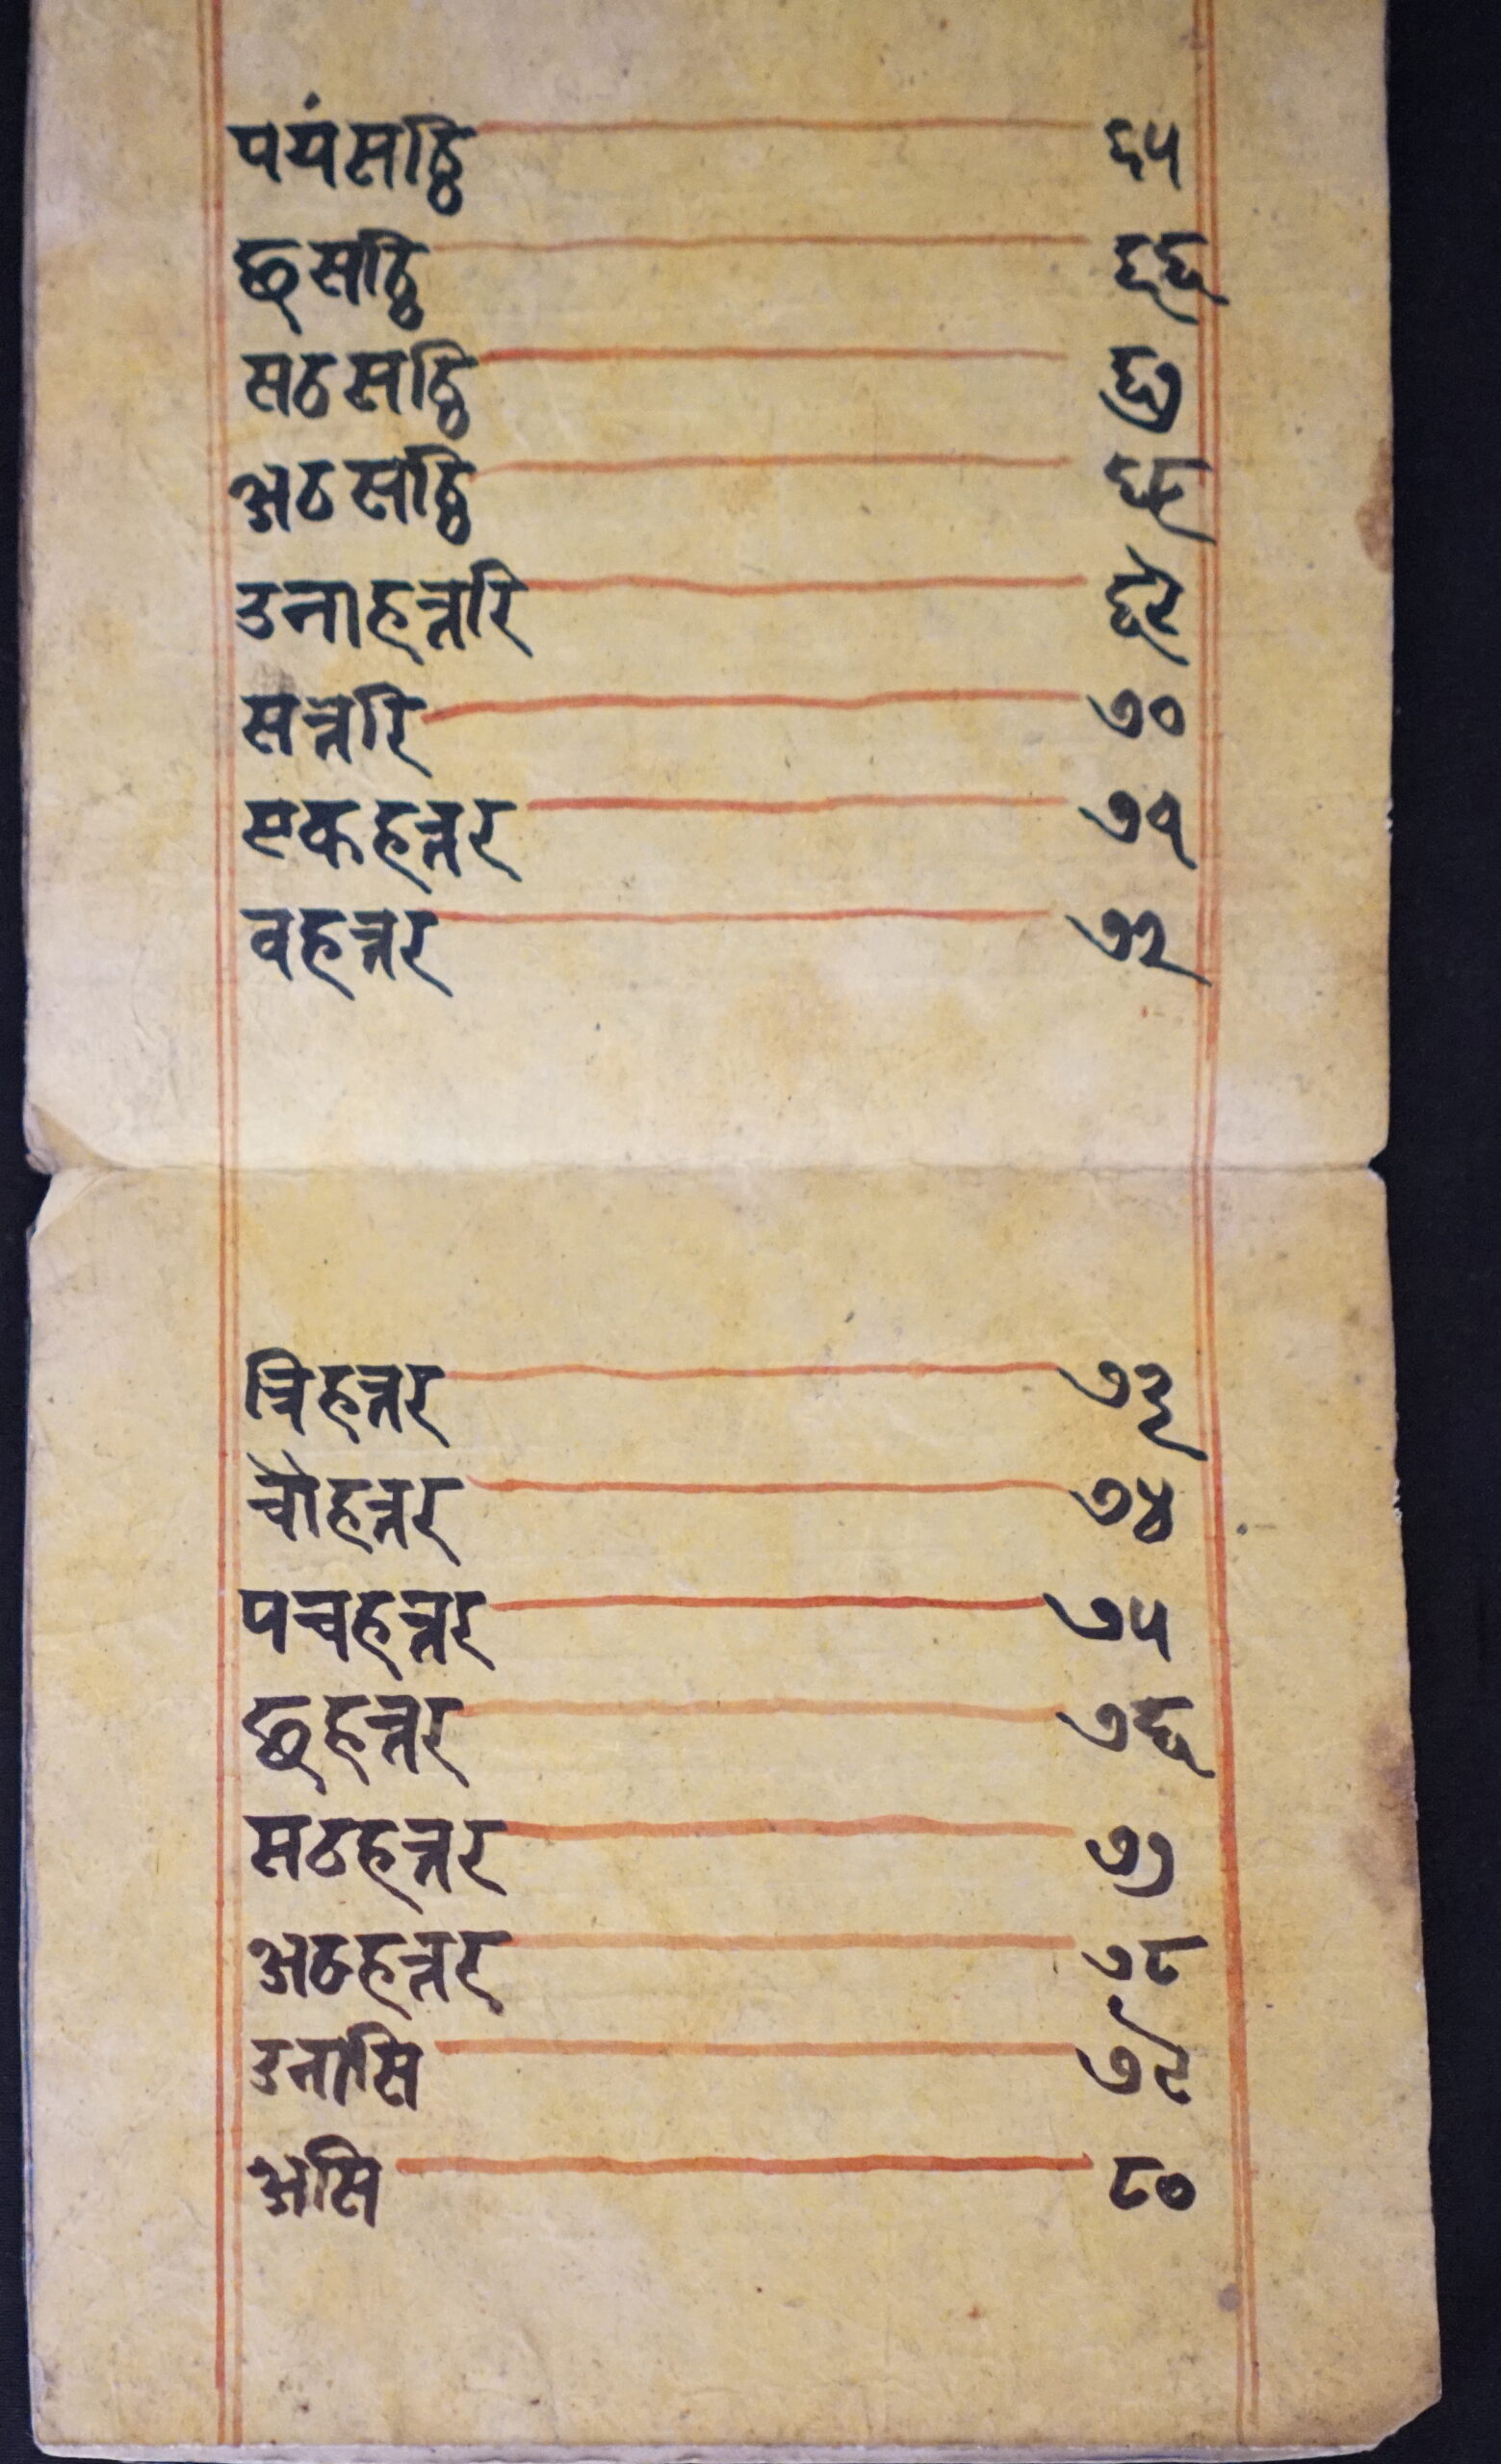 पयंसठ्ठि ६५
छसठ्ठि ६६
सठसठ्ठि ६७
अठसठ्ठि ६८
उनाहत्तरि ६९
सत्तरि ७०
एकहत्तर ७१
वहत्तर ७२
त्रिहत्तर ७३
चौहत्तर ७४
पचहत्तर ७५
छहत्तर ७६
सठहत्तर ७७
अठहत्तर ७८
उनासि ७९
असि ८०